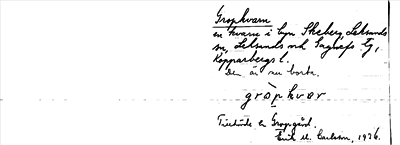 Gropkvarn
en kvarn i byn Skeberg, Leksands
sn, Leksands och Gagnefs tg,
Kopparbergs l.
Den är nu borta.
gròpkvər
Tillhörde en Gropgård.
Erik M. Carlsson, 1926.